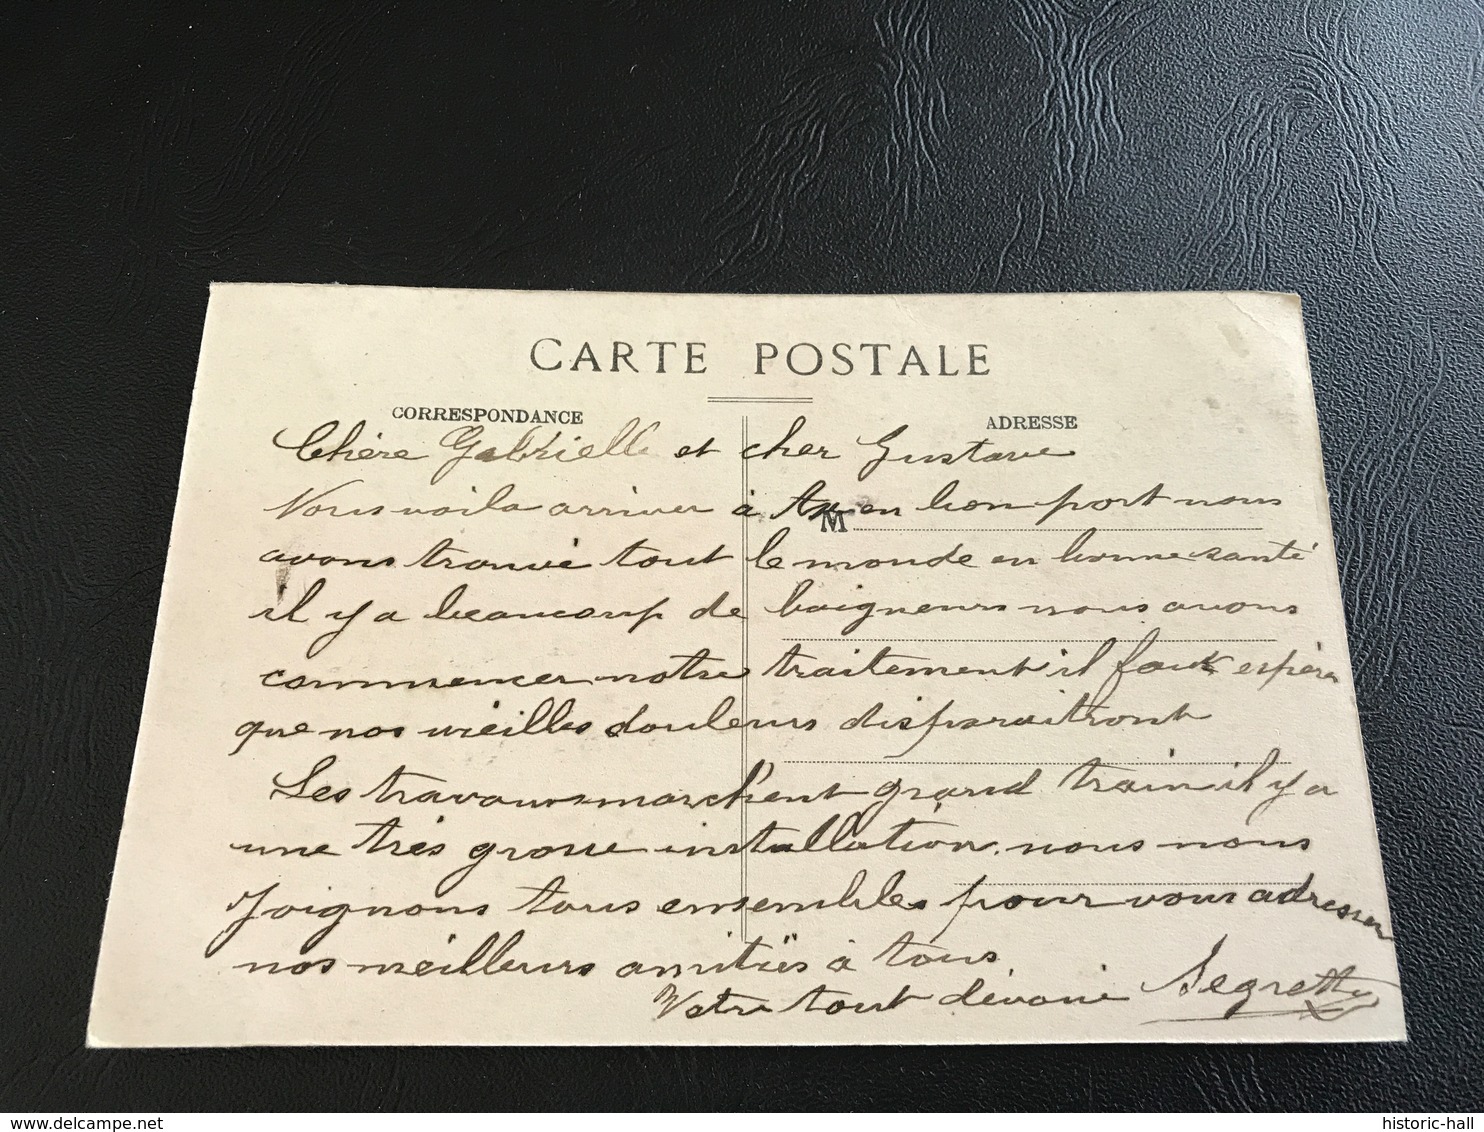 CARTE POSTALE
CORRESPONDANCE
ADRESSE
M
Chère Gabrielle et cher Gustave
Nous voila arriver à Ax en bon port nous
avons trouvé tout le monde en bonne santé
il y a beaucoup de baigneurs nous avons
commencer notre traitement il faut espérer
que nos vieilles douleurs disparaitront
Les travaux marchent grand train il y a
une très grosse installation. nous nous
joignons tous ensembles pour vous adresser
nos meilleurs amitiés à tous
Votre tout dévoué Segretty
historic-hall
delcampe.net